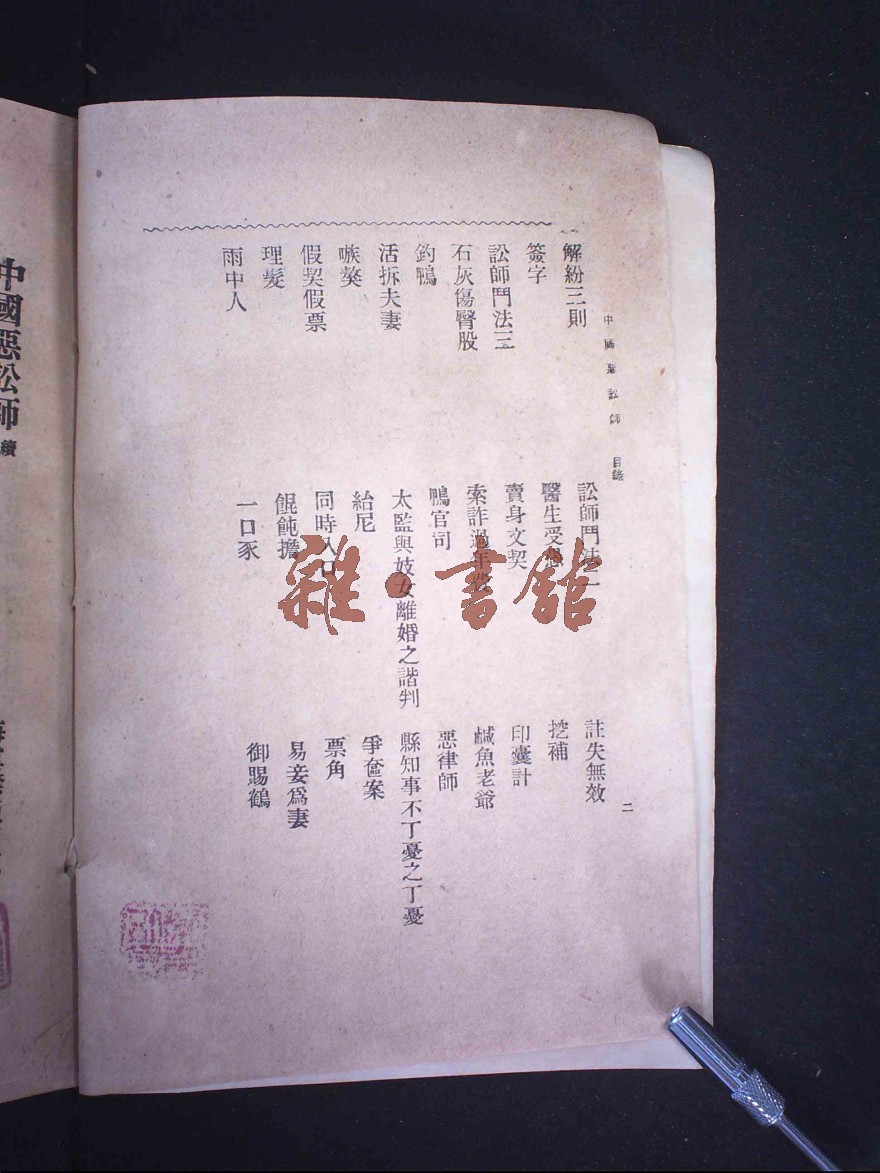 中國惡訟師　目錄
二
解紛三則
訟師鬥法二
註失無效
簽字
醫生受愚
挖補
訟師鬥法三
賣身文契
印囊計
石灰傷臀股
索詐過年
鹹魚老爺
釣鴨
鴨官司
惡律師
活拆夫妻
太監與妓女離婚之諧判
縣知事不丁憂之丁憂
嗾獒
紿尼
爭奩案
假契假票
同時入
票角
理髮
餛飩擔
易妾爲妻
雨中人
一口豕
御賜鶴
中國惡訟師
續
雜·書館